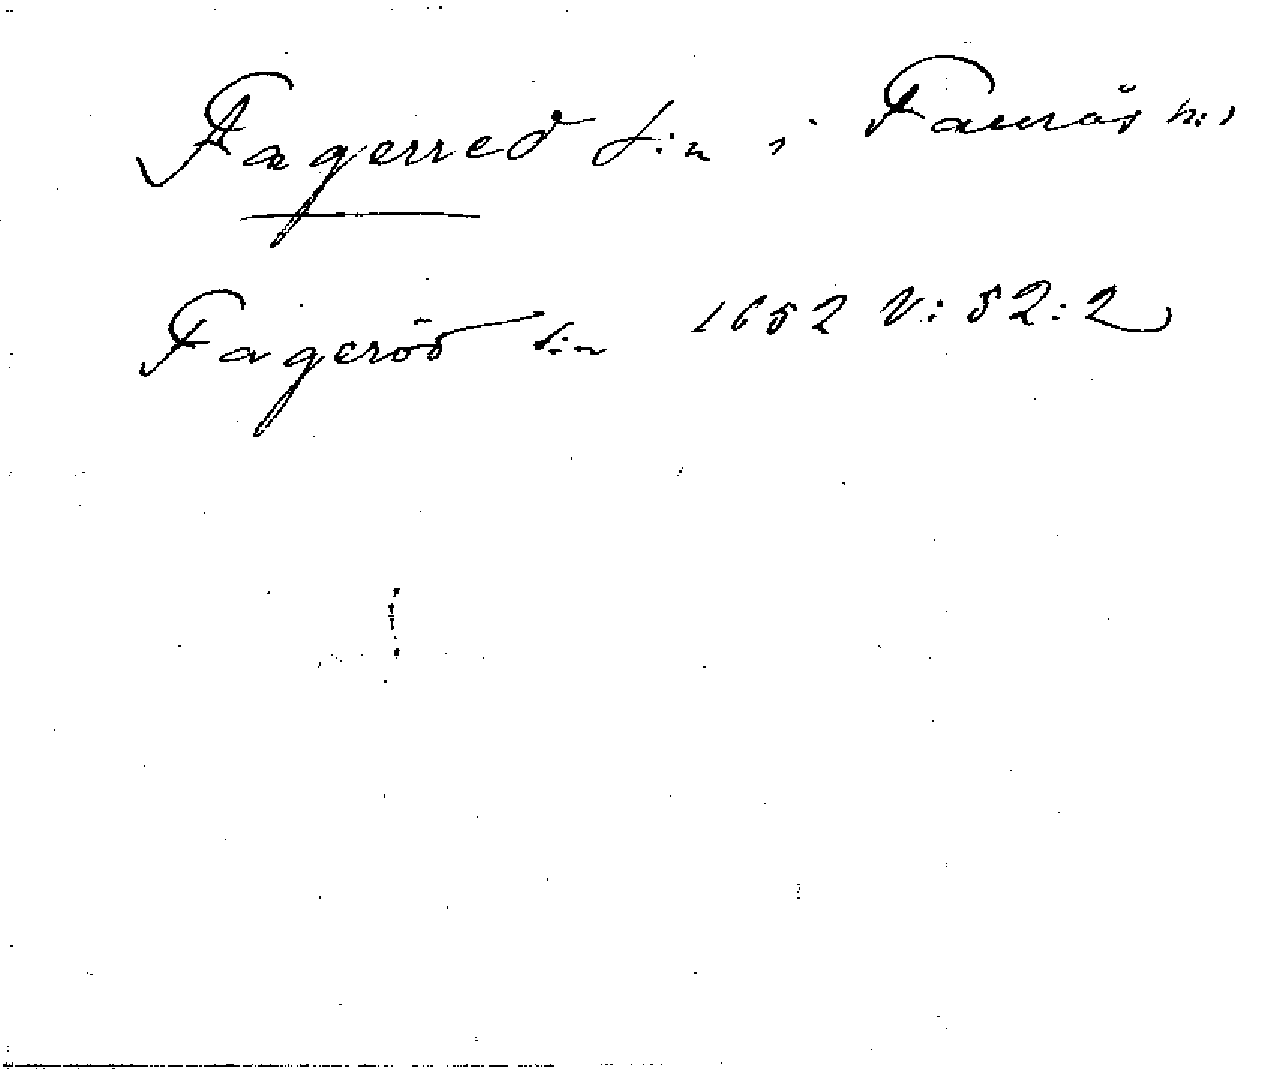 Fagerred s:n i Faurås h:d
Fageröd s:n 1652 V: 52: 2